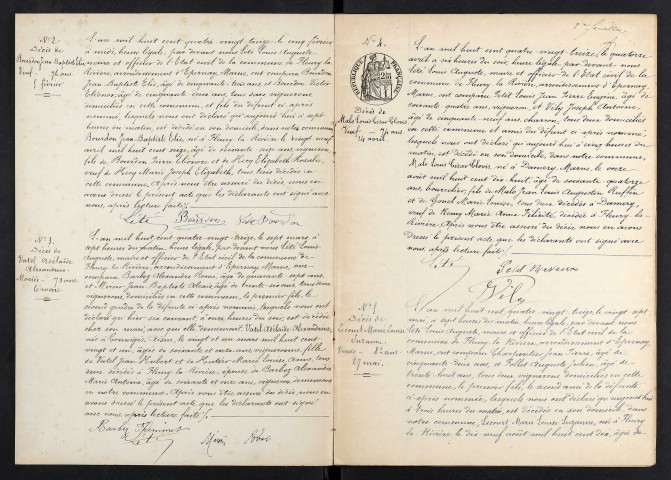 N° 2.
Décès de
Bourdon Jean Baptiste Elie
Veuf - 76 ans
5 février
L'an mil huit cent quatre vingt treize, le cinq février
à midi, heure légale, par devant nous Lété Louis Auguste
maire et officier de l'Etat civil de la commune de Fleury la
Rivière, arrondissement d'Epernay, Marne, ont comparu Bourdon
Jean Baptiste Elie, âgé de cinquante trois ans et Bourdon Victor
Eléonor, âgé de cinquante ans, tous deux vignerons
domiciliés en cette commune, et fils du défunt ci après
nommé, lesquels nous ont déclaré qu'aujourd'hui à sept
heures du matin, est décédé en son domicile, dans notre commune
Bourdon Jean Baptiste Elie, né à Fleury la Rivière le vingt neuf
avril mil huit cent seize, âgé de soixante seize ans, vigneron,
fils de Bourdon Pierre Eléonor et de Hecq Elisabeth Rosalie,
veuf de Hecq Marie Joseph Elisabeth, tous trois décédés en
cette commune. Après nous être assuré du décès nous en
avons dressé le présent acte que les déclarants ont signé avec
nous, après lecture faite.
Lété Bourdon Bourdon
N° 3.
Décès de
Vatel Adélaïde
Alexandrine
Mariée - 71 ans
6 mars
L'an mil huit cent quatre vingt treize, le sept mars à
sept heures du matin, heure légale, par devant nous Lété Louis
Auguste, maire et officier de l'Etat civil de la commune de
Fleury la Rivière, arrondissement d'Epernay, Marne, ont
comparu Barbey Alexandre Remi, âgé de quarante sept ans,
et Jean Baptiste, âgé de trente six ans, tous deux
vignerons, domiciliés en cette commune, le premier fils, le
second gendre de la défunte ci après nommée, lesquels nous ont
déclaré qu'hier six courant, à onze heures du soir, est décédée
chez son mari, avec qui elle demeurait Vatel Adélaïde Alexandrine,
née à Connigis, Aisne, le vingt et un mars mil huit cent
vingt et un, âgée de soixante et onze ans, vigneronne, fille
de Vatel Jean et de Marie Louise Anne, tous
deux décédés à Fleury la Rivière, épouse de Barbey Alexandre
Marie Antoine, âgé de soixante et onze ans, vigneron, demeurant
en notre commune. Après nous être assuré du décès, nous en
avons dressé le présent acte que les déclarants ont signé
avec nous, après lecture faite.
Barbey
Lété
2e feuillet
N° 4.
RÉPUBLIQUE FRANÇAISE
Décès de
Malo Louis César Clovis
Veuf - 74 ans
14 avril
L'an mil huit cent quatre vingt treize, le quatorze
avril à six heures du soir, heure légale par devant nous
Lété Louis Auguste, maire et officier de l'Etat civil de la
commune de Fleury la Rivière, arrondissement d'Epernay,
Marne, ont comparu Petit Jean Pierre Eugène, âgé de
soixante quatre ans, vigneron, et Vély Joseph Antoine,
âgé de cinquante neuf ans, charron, tous deux domiciliés
en cette commune et amis du défunt ci après nommé,
lesquels nous ont déclaré qu'aujourd'hui à cinq heures du
matin, est décédé en son domicile, dans notre commune,
Malo Louis César Clovis, né à Damery, Marne, le onze
août mil huit cent dix huit, âgé de soixante quatorze
ans, bourrelier, fils de Malo Jean Louis Augustin Ruffin
et de Gonel Marie Louise, tous deux décédés à Damery,
veuf de Remy Marie Anne Félicité décédée à Fleury la
Rivière. Après nous être assuré du décès nous en avons
dressé le présent acte que les déclarants ont signé avec
nous, après lecture faite.
Lété Petit
Vély
N° 5.
Décès de
Lecourt Marie Louise
Suzanne
Veuve - 82 ans
27 mai.
L'an mil huit cent quatre vingt treize, le vingt sept
mai, à sept heures du matin, heure légale, par devant nous
Lété Louis Auguste, maire et officier de l'Etat civil de la
commune de Fleury la Rivière, arrondissement d'Epernay,
Marne, ont comparu Charpentier Jean Pierre, âgé de
cinquante deux ans, et Pollet Auguste Julien, âgé de
trente huit ans, tous deux vignerons domiciliés en cette
commune, le premier fils, le second ami de la défunte
ci après nommée, lesquels nous ont déclaré qu'aujourd'hui
à trois heures du matin, est décédée en son domicile dans
notre commune, Lecourt Marie Louise Suzanne, née à Fleury
la Rivière, le dix neuf août mil huit cent dix, âgée de